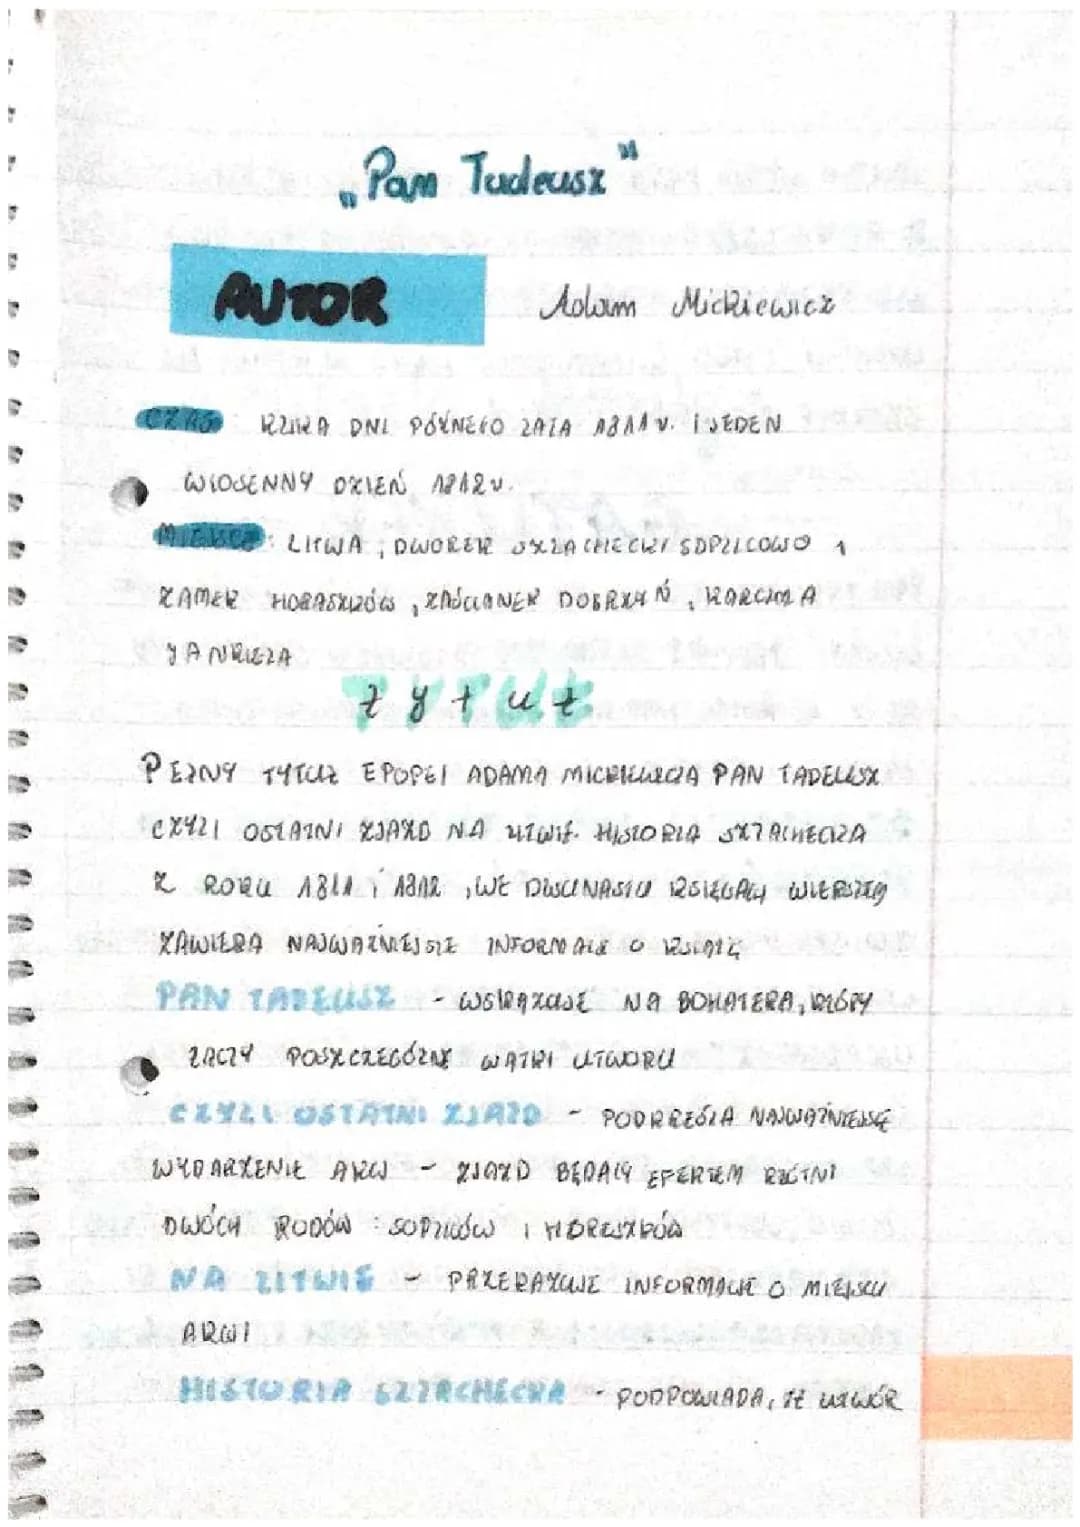 „Pan Tadeusz"
AUTOR Adam Mickiewicz
CZAS KILKA DNI PÓŹNEGO LATA 1811 r. I JEDEN
WIOSENNY DZIEŃ 1812 r.
MIEJSCE: LITWA, DWOREK SZLACHECKI SOPLICOWO,
ZAMEK HORESZKÓW, ZAŚCIANEK DOBRZYŃ, KARCZMA
JANKIELA
Tytuł
PEŁNY TYTUŁ EPOPEI ADAMA MICKIEWICZA PAN TADEUSZ
CZYLI OSTATNI ZJAZD NA LITWIE. HISTORIA SZLACHECKA
Z ROKU 1811 i 1812, WE DWUNASTU KSIĘGACH WIERSZEM
ZAWIERA NAJWAŻNIEJSZE INFORMACJE O KSIĄŻCE
PAN TADEUSZ - WSKAZUJE NA BOHATERA, KTÓRY
ŁĄCZY POSZCZEGÓLNE WĄTKI UTWORU
CZYLI OSTATNI ZJAZD - PODKREŚLA NAJWAŻNIEJSZE
WYDARZENIE AKCJI - ZJAZD BĘDĄCY EFEKTEM KŁÓTNI
DWÓCH RODÓW : SOPLICÓW I HORESZKÓW
NA LITWIE - PRZEKAZUJE INFORMACJE O MIEJSCU
AKCJI
HISTORIA SZLACHECKA - PODPOWIADA, ŻE UTWÓR